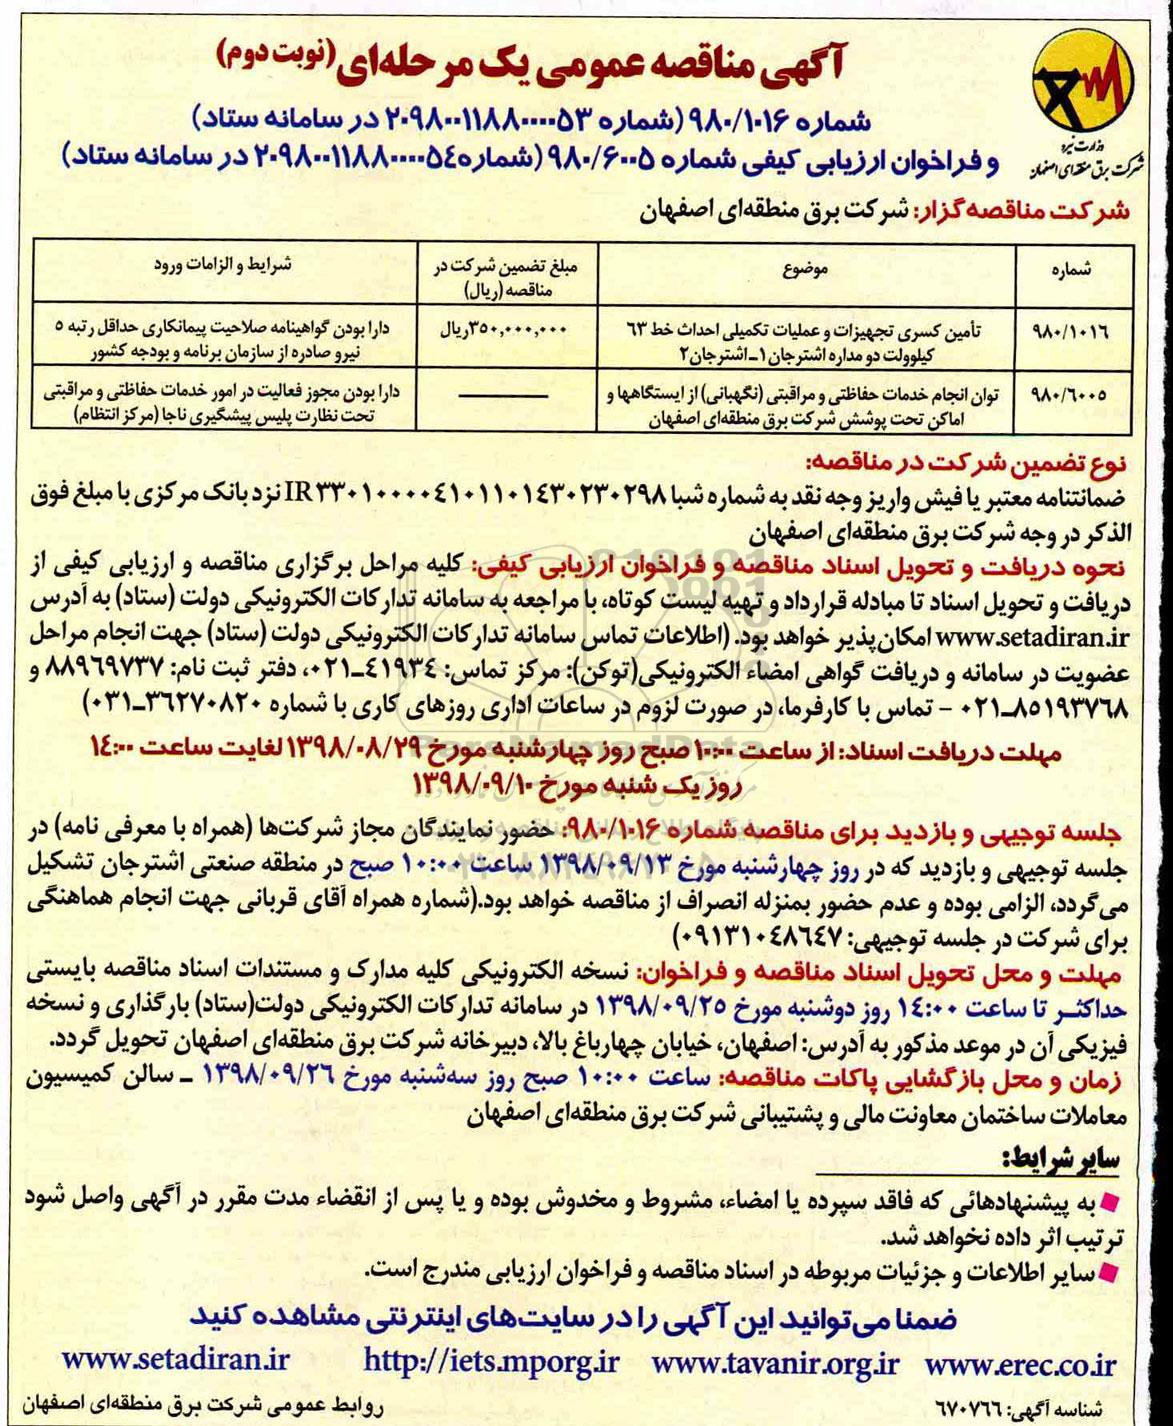 آگهی مناقصه عمومی یک مرحله‌ای (نوبت دوم)
شماره ۹۸۰/۱۰۱۶ (شماره ۲۰۹۸۰۰۱۱۸۸۰۰۰۰۵۳ در سامانه ستاد)
و فراخوان ارزیابی کیفی شماره ۹۸۰/۶۰۰۵ (شماره ۲۰۹۸۰۰۱۱۸۸۰۰۰۰۵۴ در سامانه ستاد)
وزارت نیرو
شرکت برق منطقه‌ای اصفهان
شرکت مناقصه‌گزار: شرکت برق منطقه‌ای اصفهان
شماره موضوع مبلغ تضمین شرکت در مناقصه (ریال) شرایط و الزامات ورود
۹۸۰/۱۰۱۶ تأمین کسری تجهیزات و عملیات تکمیلی احداث خط ۶۳ ۳۵۰,۰۰۰,۰۰۰ریال دارا بودن گواهینامه صلاحیت پیمانکاری حداقل رتبه ۵
کیلوولت دو مداره اشترجان۱ـ اشترجان۲ نیرو صادره از سازمان برنامه و بودجه کشور
۹۸۰/۶۰۰۵ توان انجام خدمات حفاظتی و مراقبتی (نگهبانی) از ایستگاهها و دارا بودن مجوز فعالیت در امور خدمات حفاظتی و مراقبتی
اماکن تحت پوشش شرکت برق منطقه‌ای اصفهان تحت نظارت پلیس پیشگیری ناجا (مرکز انتظام)
نوع تضمین شرکت در مناقصه:
ضمانتنامه معتبر یا فیش واریز وجه نقد به شماره شبا IR۳۳۰۱۰۰۰۰۴۱۰۱۱۰۱۴۳۰۲۳۰۲۹۸ نزد بانک مرکزی با مبلغ فوق
الذکر در وجه شرکت برق منطقه‌ای اصفهان
نحوه دریافت و تحویل اسناد مناقصه و فراخوان ارزیابی کیفی: کلیه مراحل برگزاری مناقصه و ارزیابی کیفی از
دریافت و تحویل اسناد تا مبادله قرارداد و تهیه لیست کوتاه، با مراجعه به سامانه تدارکات الکترونیکی دولت (ستاد) به آدرس
www.setadiran.ir امکان‌پذیر خواهد بود. (اطلاعات تماس سامانه تدارکات الکترونیکی دولت (ستاد) جهت انجام مراحل
عضویت در سامانه و دریافت گواهی امضاء الکترونیکی(توکن): مرکز تماس: ۴۱۹۳۴ـ۰۲۱، دفتر ثبت نام: ۸۸۹۶۹۷۳۷ و
۸۵۱۹۳۷۶۸ـ۰۲۱ - تماس با کارفرما، در صورت لزوم در ساعات اداری روزهای کاری با شماره ۳۶۲۷۰۸۲۰ـ۰۳۱)
مهلت دریافت اسناد: از ساعت ۱۰:۰۰ صبح روز چهارشنبه مورخ ۱۳۹۸/۰۸/۲۹ لغایت ساعت ۱۴:۰۰
روز یک شنبه مورخ ۱۳۹۸/۰۹/۱۰
جلسه توجیهی و بازدید برای مناقصه شماره ۹۸۰/۱۰۱۶: حضور نمایندگان مجاز شرکت‌ها (همراه با معرفی نامه) در
جلسه توجیهی و بازدید که در روز چهارشنبه مورخ ۱۳۹۸/۰۹/۱۳ ساعت ۱۰:۰۰ صبح در منطقه صنعتی اشترجان تشکیل
می‌گردد، الزامی بوده و عدم حضور بمنزله انصراف از مناقصه خواهد بود.(شماره همراه آقای قربانی جهت انجام هماهنگی
برای شرکت در جلسه توجیهی: ۰۹۱۳۱۰۴۸۶۴۷)
مهلت و محل تحویل اسناد مناقصه و فراخوان: نسخه الکترونیکی کلیه مدارک و مستندات اسناد مناقصه بایستی
حداکثر تا ساعت ۱۴:۰۰ روز دوشنبه مورخ ۱۳۹۸/۰۹/۲۵ در سامانه تدارکات الکترونیکی دولت(ستاد) بارگذاری و نسخه
فیزیکی آن در موعد مذکور به آدرس: اصفهان، خیابان چهارباغ بالا، دبیرخانه شرکت برق منطقه‌ای اصفهان تحویل گردد.
زمان و محل بازگشایی پاکات مناقصه: ساعت ۱۰:۰۰ صبح روز سه‌شنبه مورخ ۱۳۹۸/۰۹/۲۶ ـ سالن کمیسیون
معاملات ساختمان معاونت مالی و پشتیبانی شرکت برق منطقه‌ای اصفهان
سایر شرایط:
به پیشنهادهائی که فاقد سپرده یا امضاء، مشروط و مخدوش بوده و یا پس از انقضاء مدت مقرر در آگهی واصل شود
ترتیب اثر داده نخواهد شد.
سایر اطلاعات و جزئیات مربوطه در اسناد مناقصه و فراخوان ارزیابی مندرج است.
ضمنا می‌توانید این آگهی را در سایت‌های اینترنتی مشاهده کنید
www.erec.co.ir www.tavanir.org.ir http://iets.mporg.ir www.setadiran.ir
شناسه آگهی: ۶۷۰۷۶۶ روابط عمومی شرکت برق منطقه‌ای اصفهان